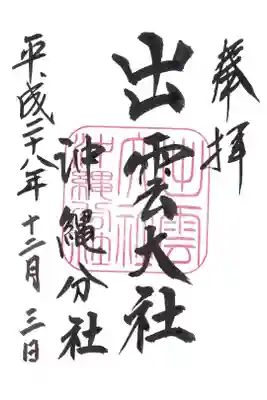 奉拝
出雲大社
沖縄分社
平成二十八年十二月三日